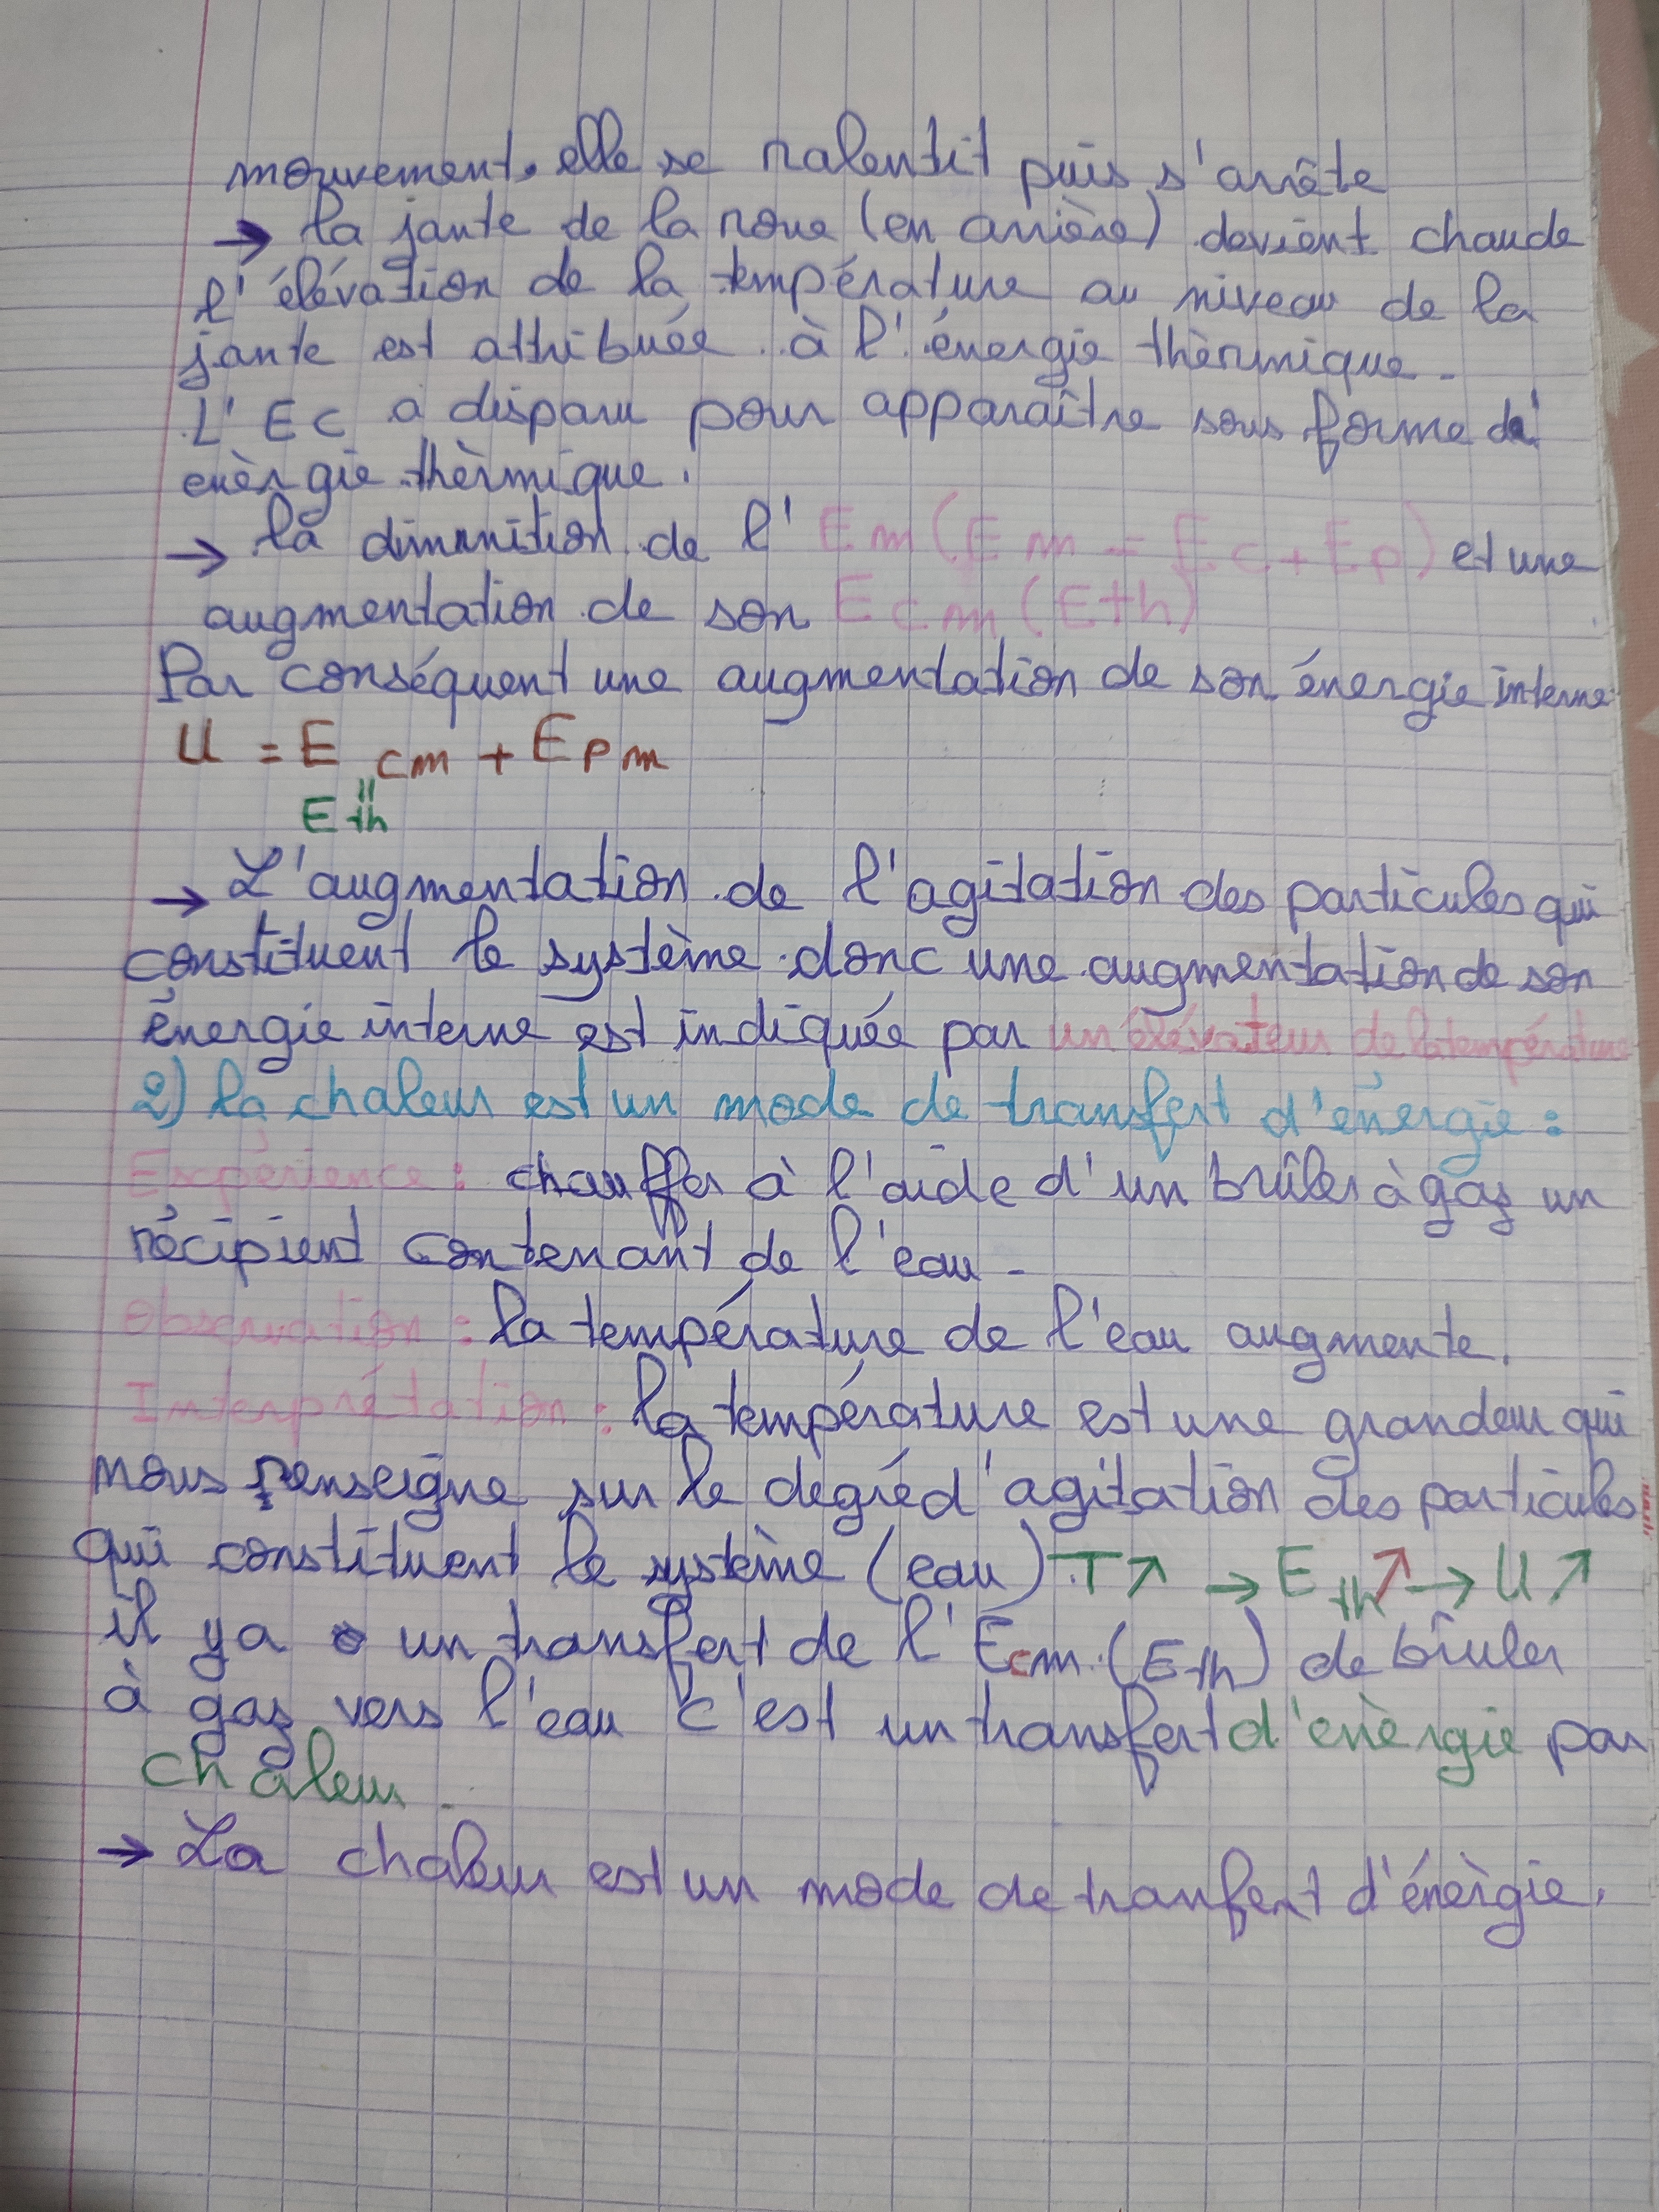 mouvement. elle se ralentit puis s'arrête
→ la jante de la roue (en arrière) devient chaude
l'élévation de la température au niveau de la
jante est attribuée à l'énergie thèrmique.
L'Ec a disparu pour apparaître sous forme de
enèrgie thèrmique.
→ la diminition de l'Em (Em = Ec + Ep) et une
augmentation de son Ecm (Eth)
Par conséquent une augmentation de son énergie interne
U = E cm + Epm
Eth
→ L'augmentation de l'agitation des particules qui
constituent le système donc une augmentation de son
énergie interne est indiquée par un élévateur de la température
2) la chaleur est un mode de transfert d'énergie :
Expérience : chauffer à l'aide d'un brûler à gaz un
récipient contenant de l'eau -
Observation : la température de l'eau augmente.
Interprétation : la température est une grandeur qui
nous renseigne sur le degré d'agitation des particules
qui constituent le système (eau) T↗ → Eth↗ → U↗
il ya un transfert de l'Ecm (Eth) de brûler
à gaz vers l'eau c'est un transfert d'enèrgie par
chaleur.
→ La chaleur est un mode de tranfert d'énèrgie.